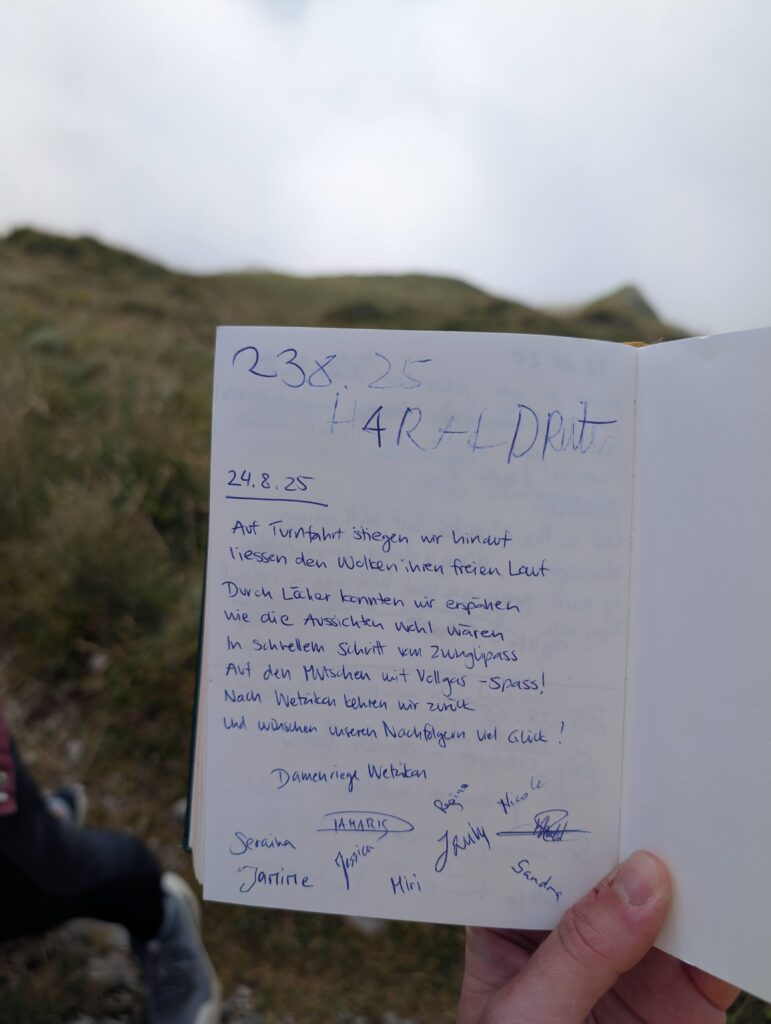 238.25
HARALD Reuter
24.8.25
Auf Turnfahrt stiegen wir hinauf
liessen den Wolken ihren freien Lauf
Durch Löcher konnten wir erspähen
wie die Aussichten wohl wären
In schnellem Schritt vom Zwinglipass
Auf den Mutschen mit Vollgas-Spass!
Nach Wetzikon kehren wir zurück
und wünschen unseren Nachfolgern viel Glück!
Damenriege Wetzikon
Regina Nicole
Seraina TAMARIS
Janine Jessica Miri Sandra